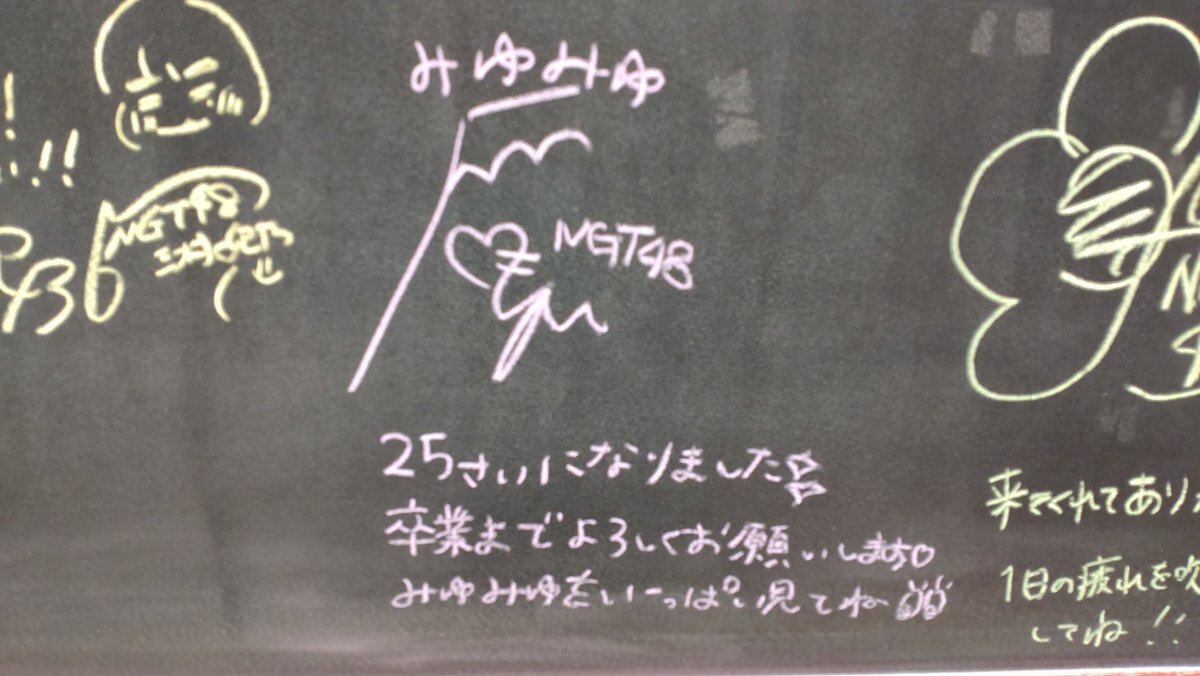 みゆみゆ
NGT48
25さいになりました
卒業までよろしくお願いします♡
みゆみゆをいーっぱい見てねー
!
!!
NGT48
来てくれてあり
1日の疲れを吹
してね!!